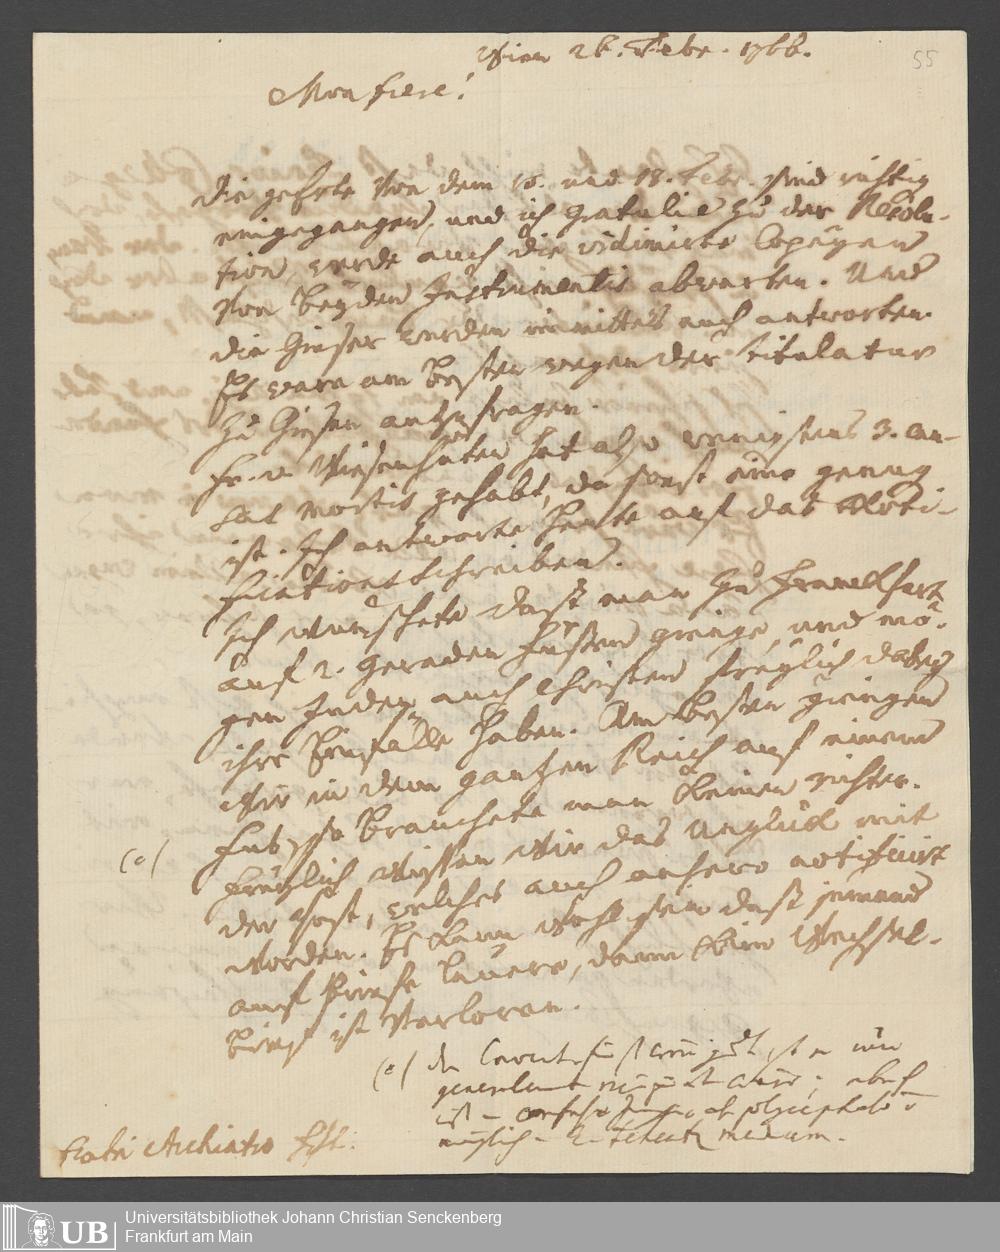 Wien 26. Febr. 1766.
55
Mon frere!
die geehrte von dem 15. und 18. Febr. sind richtig
eingegangen, und ich gratulire zu der Resolu-
tion, werde auch die vidimirte Copeyen
von beyden Instrumentis abwarten. Und
die Gieser werden immittels auch antworten.
Es ware am besten wegen der titulatur
zu Giesen anzufragen.
Hr. v. Wiesenhüten hat also wenigstens 3. cau-
sas mortis gehabt, da sonst eine genug
ist. Ich antworte heute auf das Noti-
fications schreiben.
Ich wünschete dass man zu Franckfurt
auf 2. geraden Füssen gienge, und mö-
gen Juden, auch Christen freylich dabey
ihre Einfälle haben. Am besten giengen
wir in dem gantzen Reich auf einem
Fus, so brauchete man keinen richter.
(e) freylich wissen wir das Unglück mit
der Post, welches auch anhero notificirt
worden. Es kann wohl sein dass jemand
auf briefe lauere, dann kein Wechsel-
brief ist verloren.
(e) der
ist
möglich
fratri Archiatro Hsl.
Universitätsbibliothek Johann Christian Senckenberg
Frankfurt am Main
UB